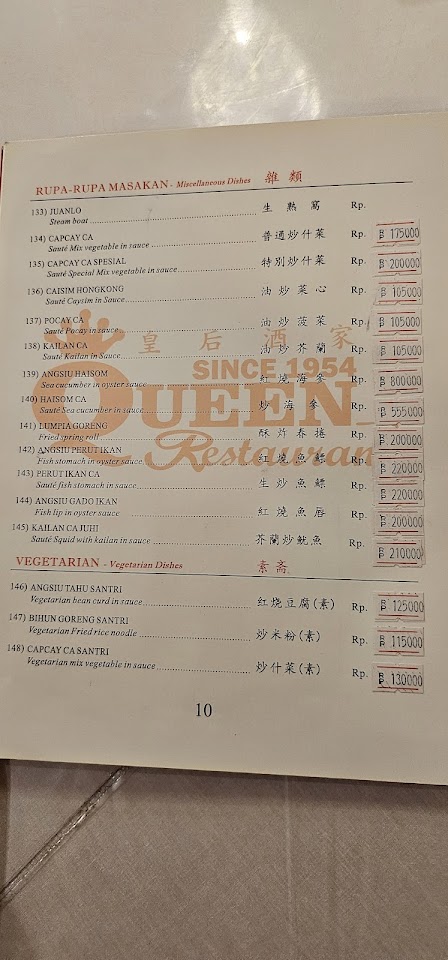 RUPA-RUPA MASAKAN - Miscellaneous Dishes 雜類
133) JUANLO 生熟窩 Rp.
Steam boat
134) CAPCAY CA 普通炒什菜 Rp. 175000
Sauté Mix vegetable in sauce
135) CAPCAY CA SPESIAL 特別炒什菜 Rp. 200000
Sauté Special Mix vegetable in sauce
136) CAISIM HONGKONG 油炒菜心 Rp. 105000
Sauté Caysim in Sauce
137) POCAY CA 油炒菠菜 Rp. 105000
Sauté Pocay in sauce
138) KAILAN CA 油炒芥蘭 Rp. 105000
Sauté Kailan in Sauce
皇后酒家
SINCE 1954
QUEEN
Restaurant
139) ANGSIU HAISOM 紅燒海參 Rp. 800000
Sea cucumber in oyster sauce
140) HAISOM CA 炒海參 Rp. 555000
Sauté Sea cucumber in sauce
141) LUMPIA GORENG 酥炸春捲 Rp. 200000
Fried spring roll
142) ANGSIU PERUT IKAN 紅燒魚鰾 Rp. 220000
Fish stomach in oyster sauce
143) PERUT IKAN CA 生炒魚鰾 Rp. 220000
Sauté fish stomach in sauce
144) ANGSIU GADO IKAN 紅燒魚唇 Rp. 200000
Fish lip in oyster sauce
145) KAILAN CA JUHI 芥蘭炒魷魚 Rp. 210000
Sauté Squid with kailan in sauce
VEGETARIAN - Vegetarian Dishes 素斋
146) ANGSIU TAHU SANTRI 红烧豆腐(素) Rp. 125000
Vegetarian bean curd in sauce
147) BIHUN GORENG SANTRI 炒米粉(素) Rp. 115000
Vegetarian Fried rice noodle
148) CAPCAY CA SANTRI 炒什菜(素) Rp. 130000
Vegetarian mix vegetable in sauce
10